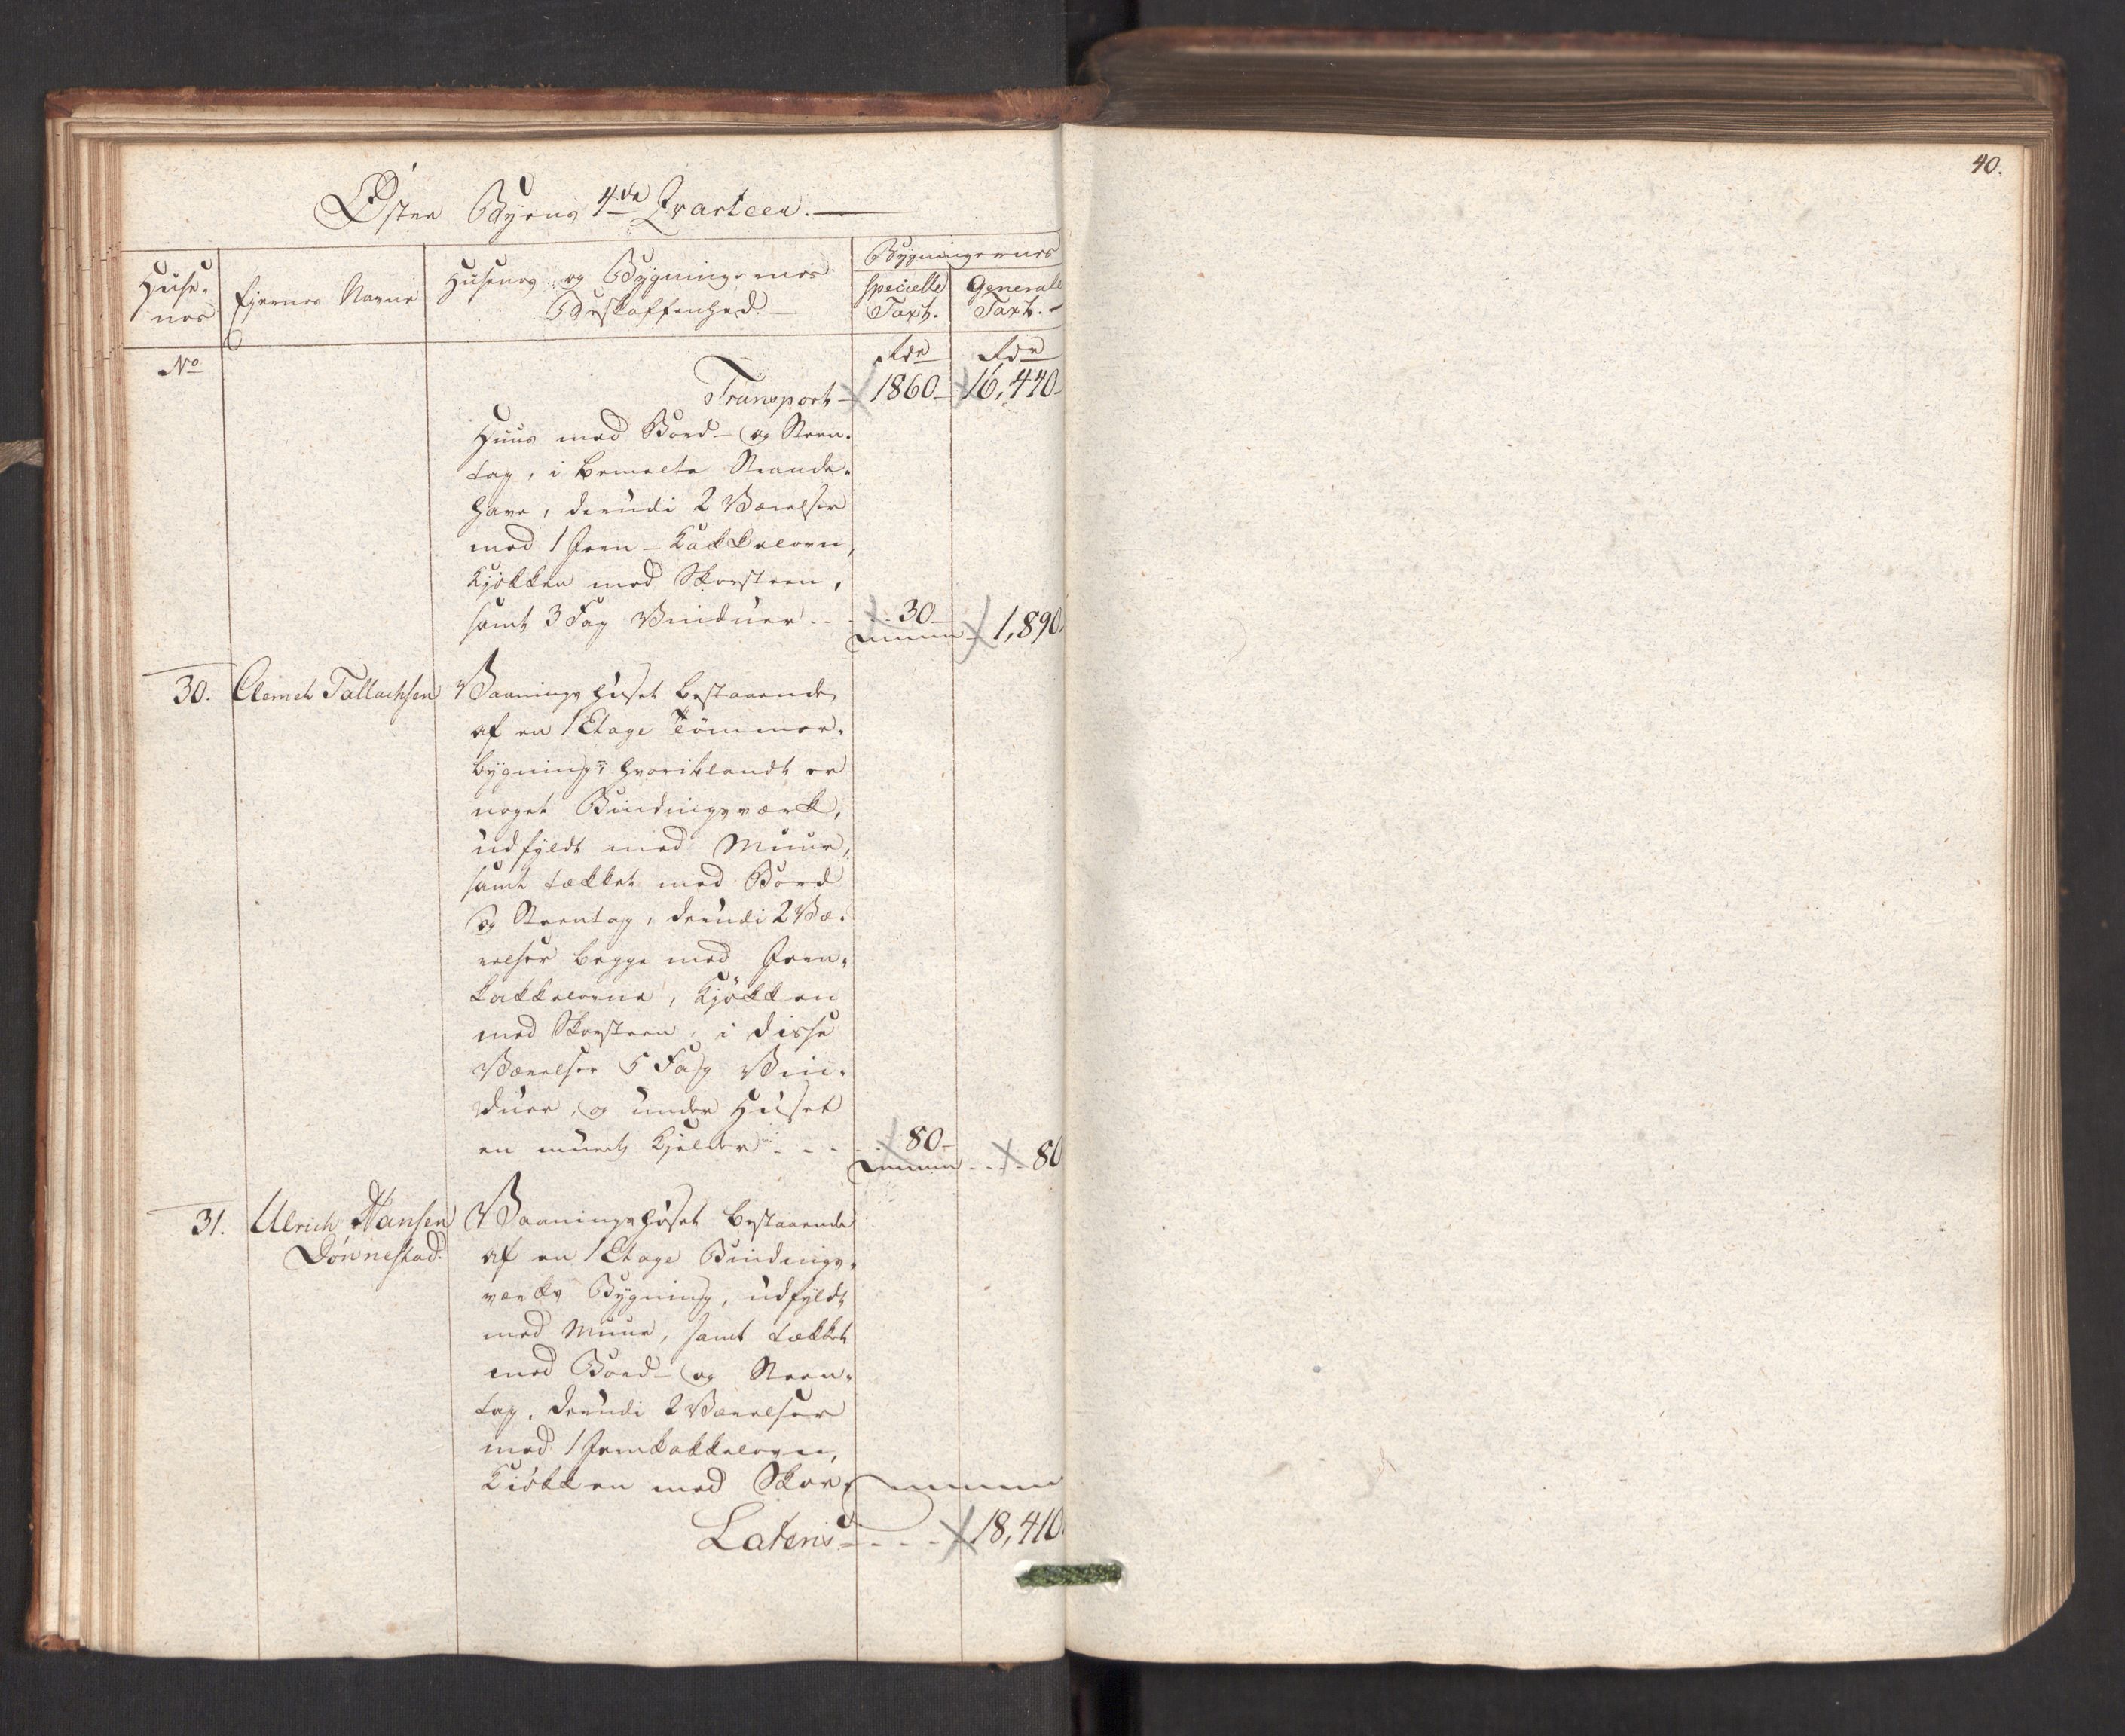 40.
Øster Byens 4de Qvarteer.
Huse-
nes
Ejernes Navne
Husenes og Bygningernes
Beskaffenhed.
Bygningernes
Specielle
Taxt.
Generale
Taxt.
No
Rdr
Rdr
Transport 1860 16,440
Huus med Bord- og Steen-
tag, i bemelte Strande-
have, derudi 2 Værelser
med 1 Jern-Kakkelovn,
Kjökken med Skorsteen,
samt 3 Fag Vinduer .. 30
1,890
30. Clemet Tallachsen Vaaningshuset bestaaende
af en 1 Etage Tömmer-
bygning, hvoriblandt er
noget Bindingsværk,
udfyldt med Muur,
samt tækket med Bord
og Steentag, derudi 2 Væ-
relser begge med Jern-
kakkelovne, Kjökken
med Skorsteen, i disse
Værelser 5 Fag Vin-
duer, og under Huset
en muret Kjelder . . . 80
80
31. Ulrich Hansen Vaaningshuset bestaaende
Dönnestad. af en 1 Etage Bindings-
værks Bygning, udfyldt
med Muur, samt tækket
med Bord- og Steen-
tag, derudi 2 Værelser
med 1 Jernkakkelovn,
Kiökken med Skor-
Lateris . . . 18,410